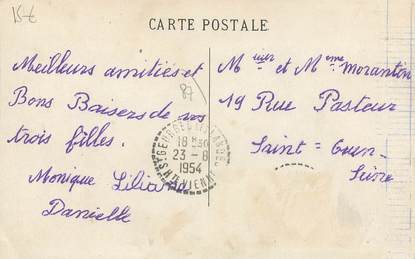 15€
CARTE POSTALE
Meilleurs amitiés et
Bons Baisers de vos
trois filles.
Monique Liliane
Danielle
87
18H30
23-8
1954
HTE VIENNE
Mr et Mme Morantin
19 Rue Pasteur
Saint-Ouen-
Seine